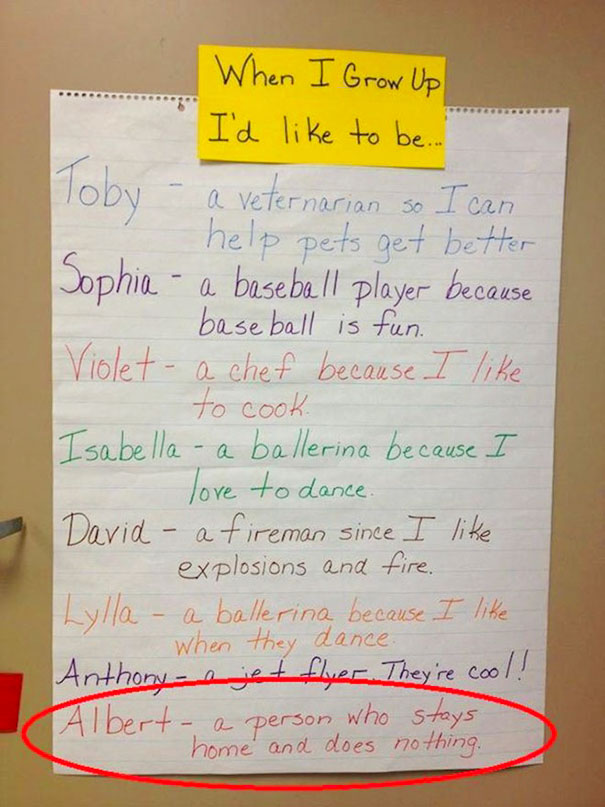 When I Grow Up
I'd like to be...
Toby - a veternarian so I can
help pets get better
Sophia - a baseball player because
baseball is fun.
Violet - a chef because I like
to cook.
Isabella - a ballerina because I
love to dance.
David - a fireman since I like
explosions and fire.
Lylla - a ballerina because I like
when they dance.
Anthony - a jet flyer. They're cool!
Albert - a person who stays
home and does nothing.